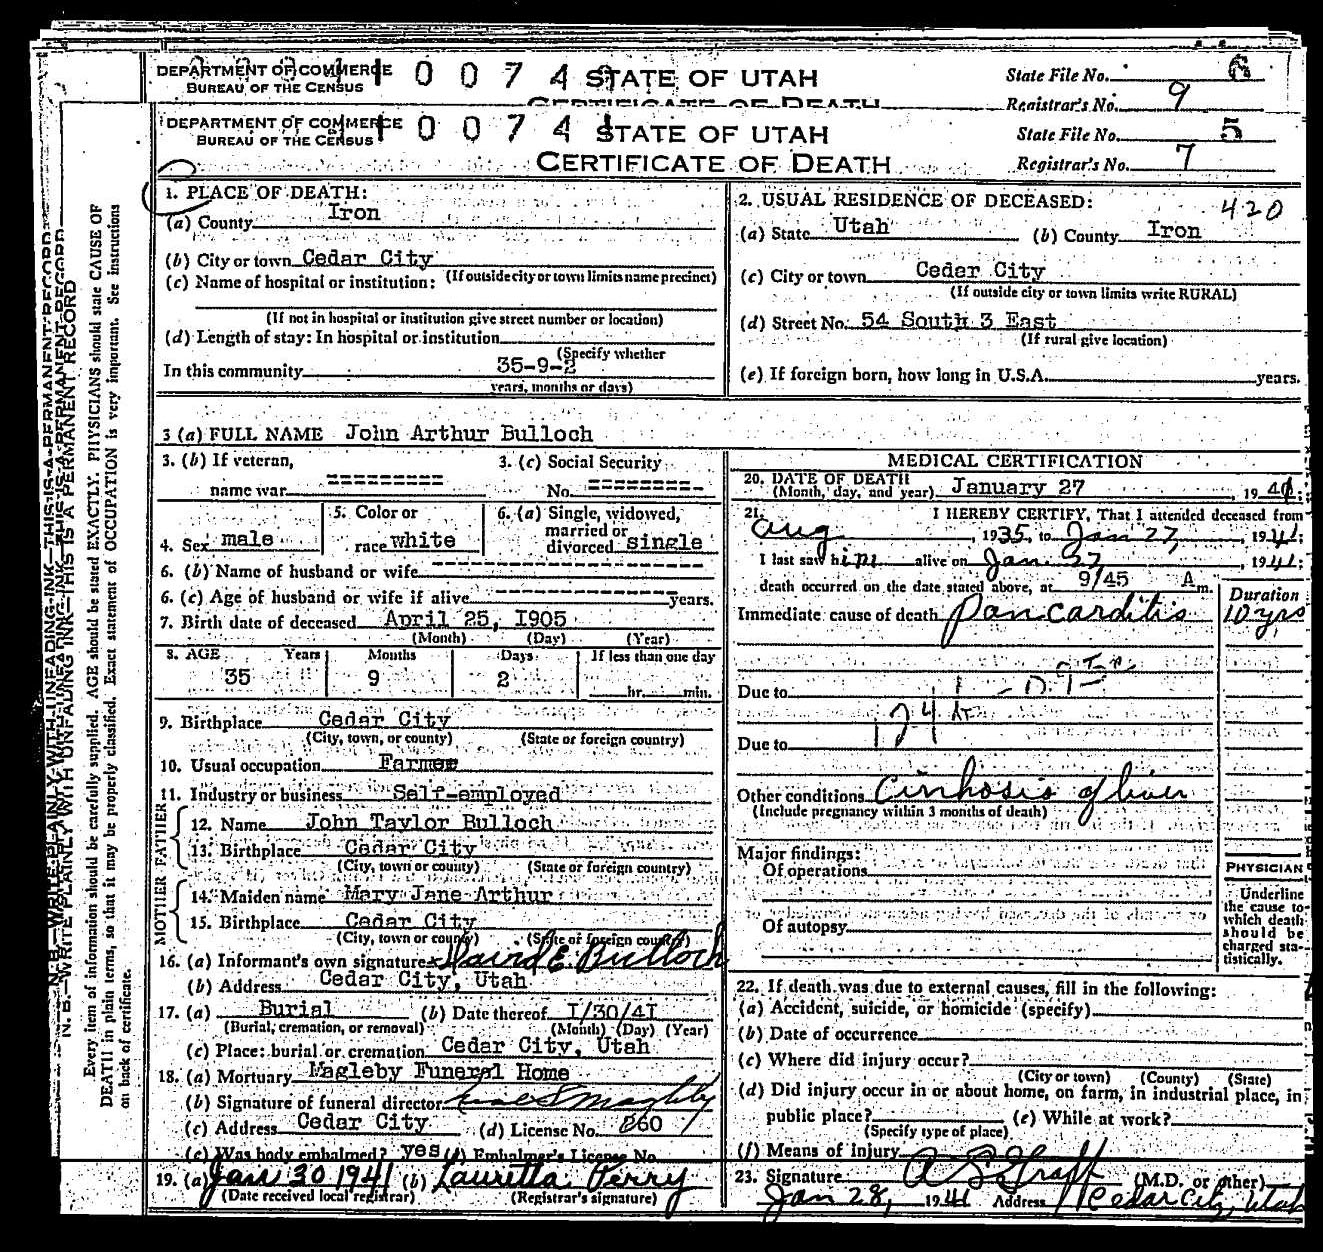 DEPARTMENT OF COMMERCE
BUREAU OF THE CENSUS
0 0 7 4
STATE OF UTAH
CERTIFICATE OF DEATH
State File No. 6
Registrar's No. 9
DEPARTMENT OF COMMERCE
BUREAU OF THE CENSUS
0 0 7 4 1
STATE OF UTAH
CERTIFICATE OF DEATH
State File No. 5
Registrar's No. 7
N. B.—WRITE PLAINLY WITH UNFADING INK—THIS IS A PERMANENT RECORD
Every item of information should be carefully supplied. AGE should be stated EXACTLY. PHYSICIANS should state CAUSE OF
DEATH in plain terms, so that it may be properly classified. Exact statement of OCCUPATION is very important. See instructions
on back of certificate.
1. PLACE OF DEATH:
(a) County Iron
(b) City or town Cedar City
(If outside city or town limits name precinct)
(c) Name of hospital or institution:
(If not in hospital or institution give street number or location)
(d) Length of stay: In hospital or institution
(Specify whether
In this community 35-9-2
years, months or days)
2. USUAL RESIDENCE OF DECEASED: 420
(a) State Utah (b) County Iron
(c) City or town Cedar City
(If outside city or town limits write RURAL)
(d) Street No. 54 South 3 East
(If rural give location)
(e) If foreign born, how long in U.S.A. years.
3 (a) FULL NAME John Arthur Bulloch
3. (b) If veteran,
name war ---------
3. (c) Social Security
No. ---------
4. Sex male
5. Color or
race white
6. (a) Single, widowed,
married or
divorced single
6. (b) Name of husband or wife
6. (c) Age of husband or wife if alive years.
7. Birth date of deceased April 25, 1905
(Month) (Day) (Year)
8. AGE Years Months Days If less than one day
35 9 2 hr. min.
9. Birthplace Cedar City
(City, town, or county) (State or foreign country)
10. Usual occupation Farmer
11. Industry or business Self-employed
FATHER
12. Name John Taylor Bulloch
13. Birthplace Cedar City
(City, town or county) (State or foreign country)
MOTHER
14. Maiden name Mary Jane Arthur
15. Birthplace Cedar City
(City, town or county) (State or foreign country)
16. (a) Informant's own signature David E. Bulloch
(b) Address Cedar City, Utah
17. (a) Burial (b) Date thereof 1/30/41
(Burial, cremation, or removal) (Month) (Day) (Year)
(c) Place: burial or cremation Cedar City, Utah
18. (a) Mortuary Magleby Funeral Home
(b) Signature of funeral director Magleby
(c) Address Cedar City (d) License No. 260
(e) Was body embalmed? yes (f) Embalmer's License No.
19. (a) Jan 30 1941 (b) Lauretta Perry
(Date received local registrar) (Registrar's signature)
MEDICAL CERTIFICATION
20. DATE OF DEATH
(Month, day, and year) January 27, 1941;
21. I HEREBY CERTIFY, That I attended deceased from
Aug, 1935, to Jan 27, 1941;
I last saw him alive on Jan. 27, 1941;
death occurred on the date stated above, at 9/45 A m.
Duration
Immediate cause of death Pancarditis 10 yrs
Due to
Due to
Other conditions Cirrhosis of liver
(Include pregnancy within 3 months of death)
Major findings:
Of operations
Of autopsy
PHYSICIAN
Underline
the cause to
which death
should be
charged sta-
tistically.
22. If death was due to external causes, fill in the following:
(a) Accident, suicide, or homicide (specify)
(b) Date of occurrence
(c) Where did injury occur?
(City or town) (County) (State)
(d) Did injury occur in or about home, on farm, in industrial place, in
public place? (e) While at work?
(Specify type of place)
(f) Means of injury
23. Signature A L Graff (M.D. or other)
Jan 28, 1941 Address Cedar City, Utah